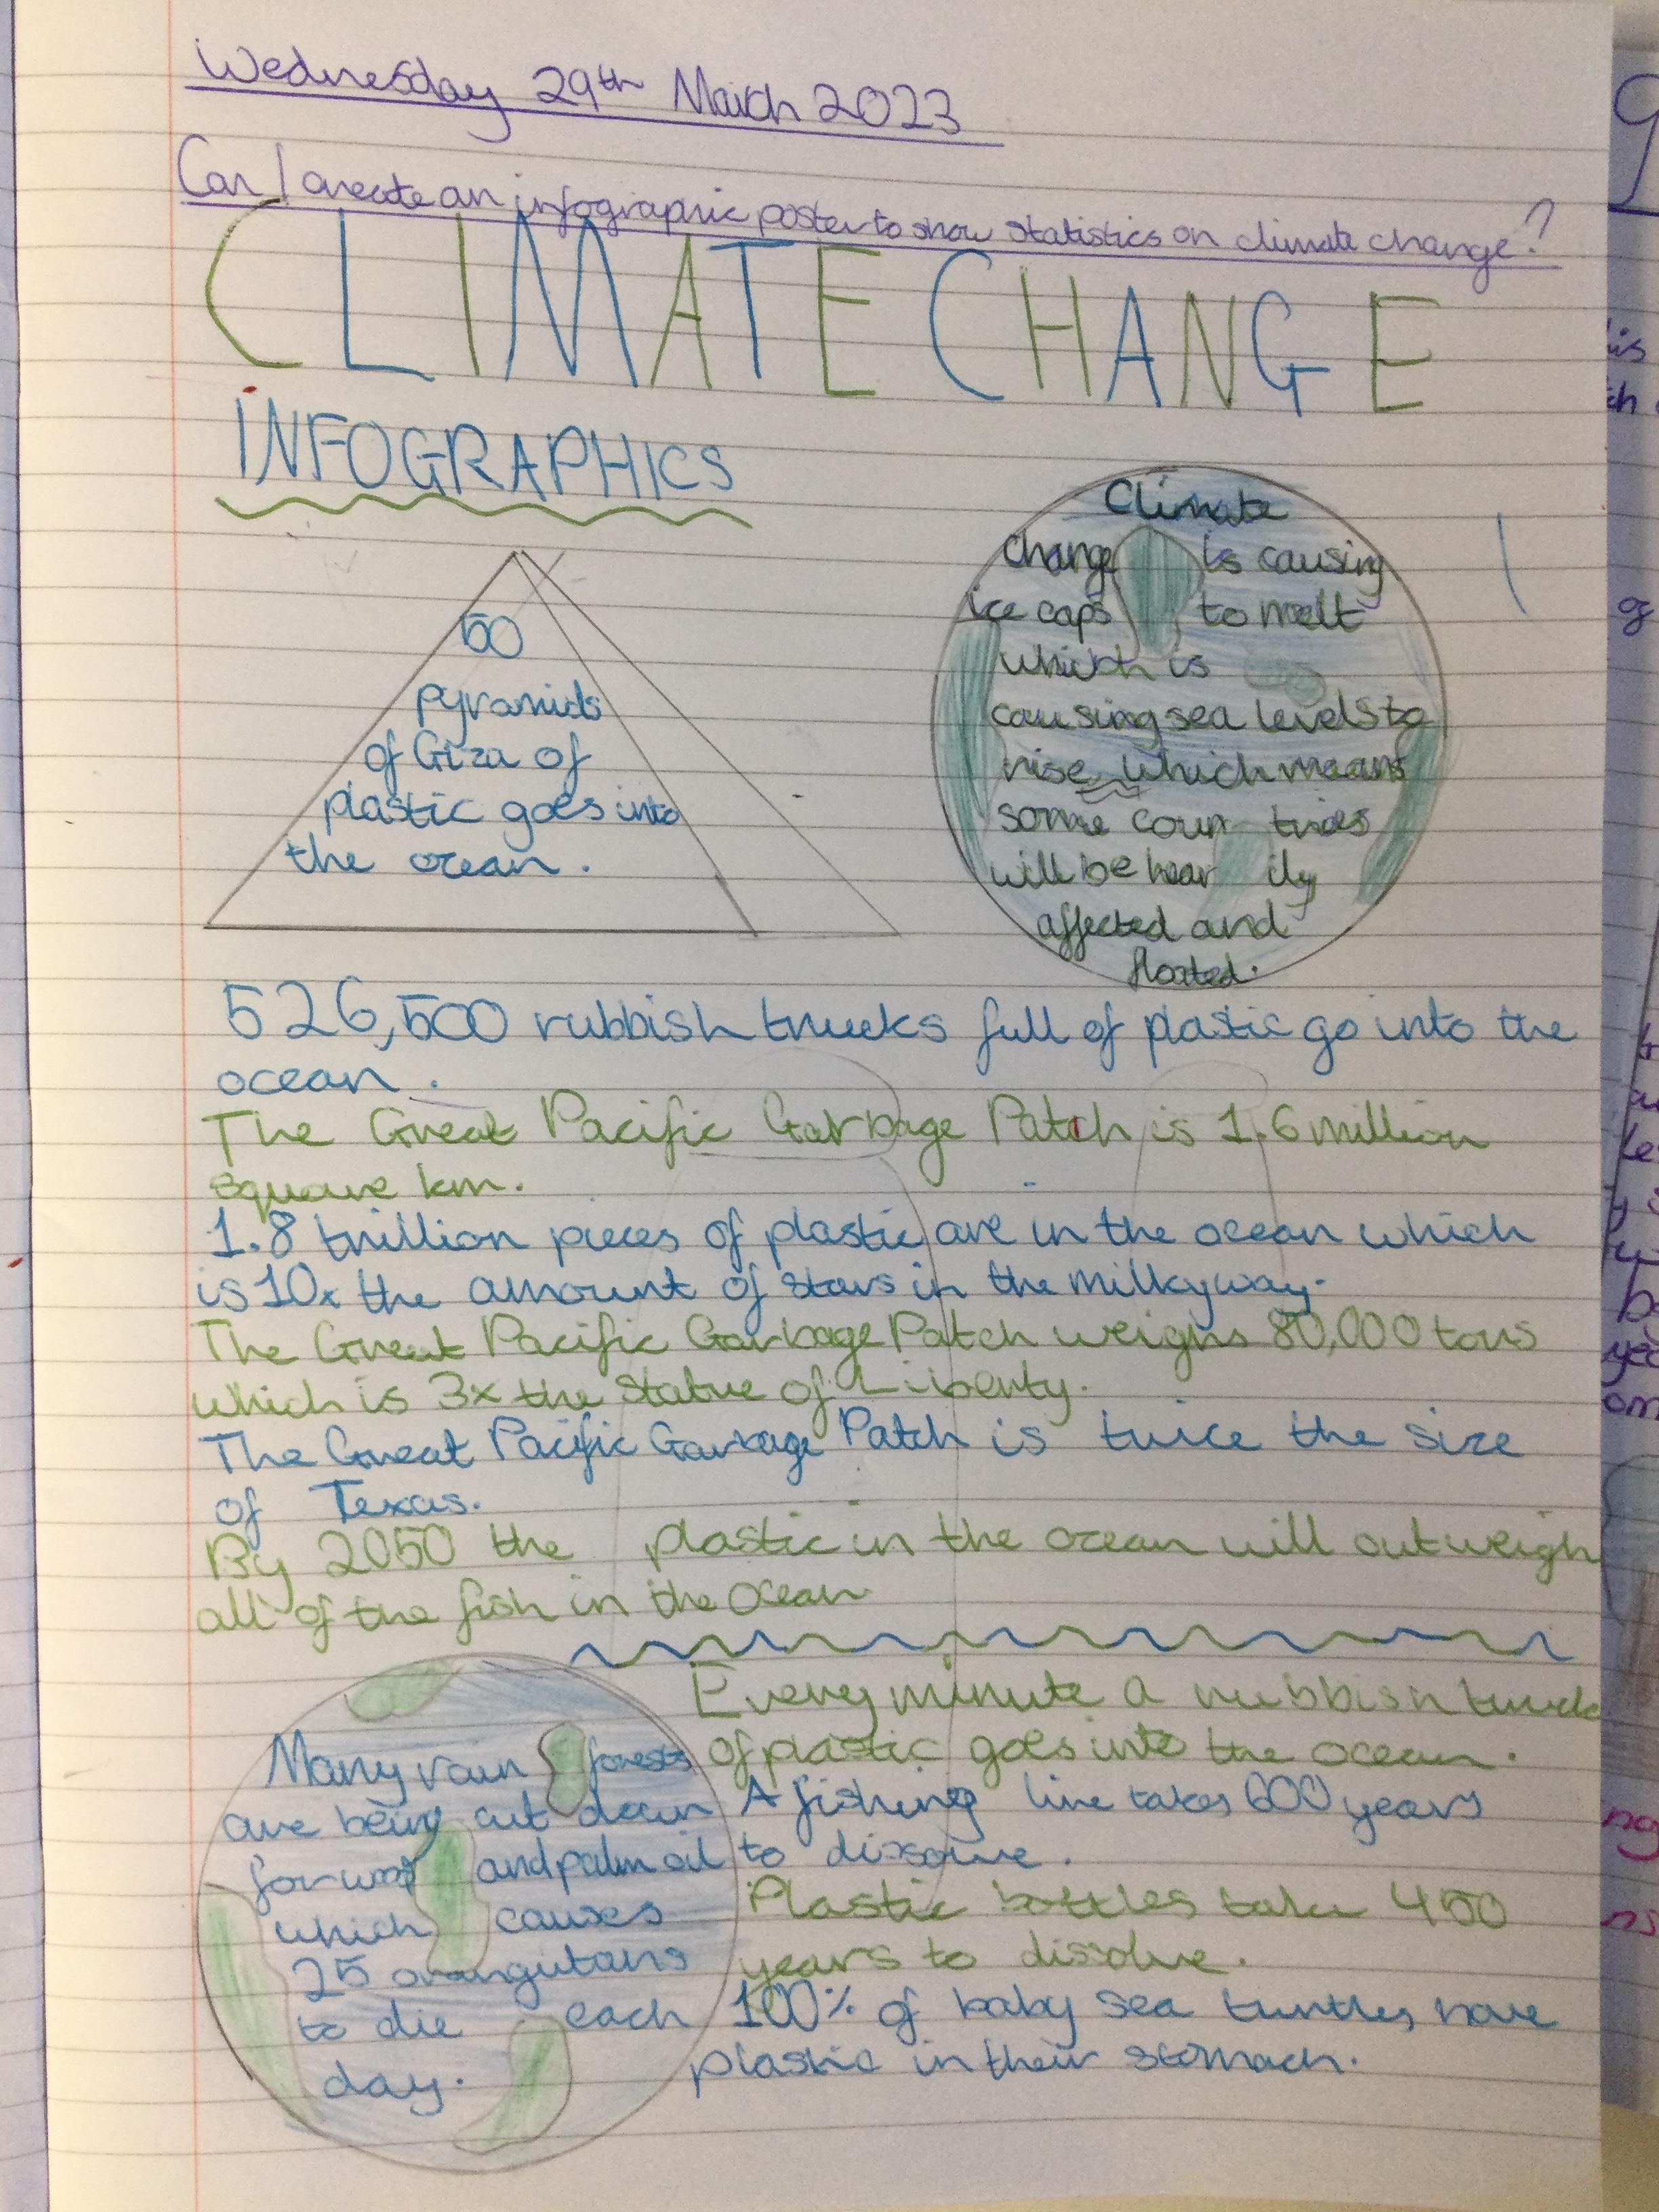 Wednesday 29th March 2023
Can I create an infographic poster to show statistics on climate change?
CLIMATE CHANGE
INFOGRAPHICS
50
pyramids
of Giza of
plastic goes into
the ocean.
Climate
change is causing
ice caps to melt
which is
causing sea levels to
rise which means
some coun tries
will be heav ily
affected and
floated.
526,500 rubbish trucks full of plastic go into the
ocean.
The Great Pacific Garbage Patch is 1.6 million
square km.
1.8 trillion pieces of plastic are in the ocean which
is 10x the amount of stars in the milkyway.
The Great Pacific Garbage Patch weighs 80,000 tons
which is 3x the Statue of Liberty.
The Great Pacific Garbage Patch is twice the size
of Texas.
By 2050 the plastic in the ocean will outweigh
all of the fish in the ocean
Many rain forests
are being cut down
for wood and palm oil
which causes
25 orangutans
to die each
day.
Every minute a rubbish truck
of plastic goes into the ocean.
A fishing line takes 600 years
to dissolve.
Plastic bottles take 450
years to dissolve.
100% of baby sea turtles have
plastic in their stomach.